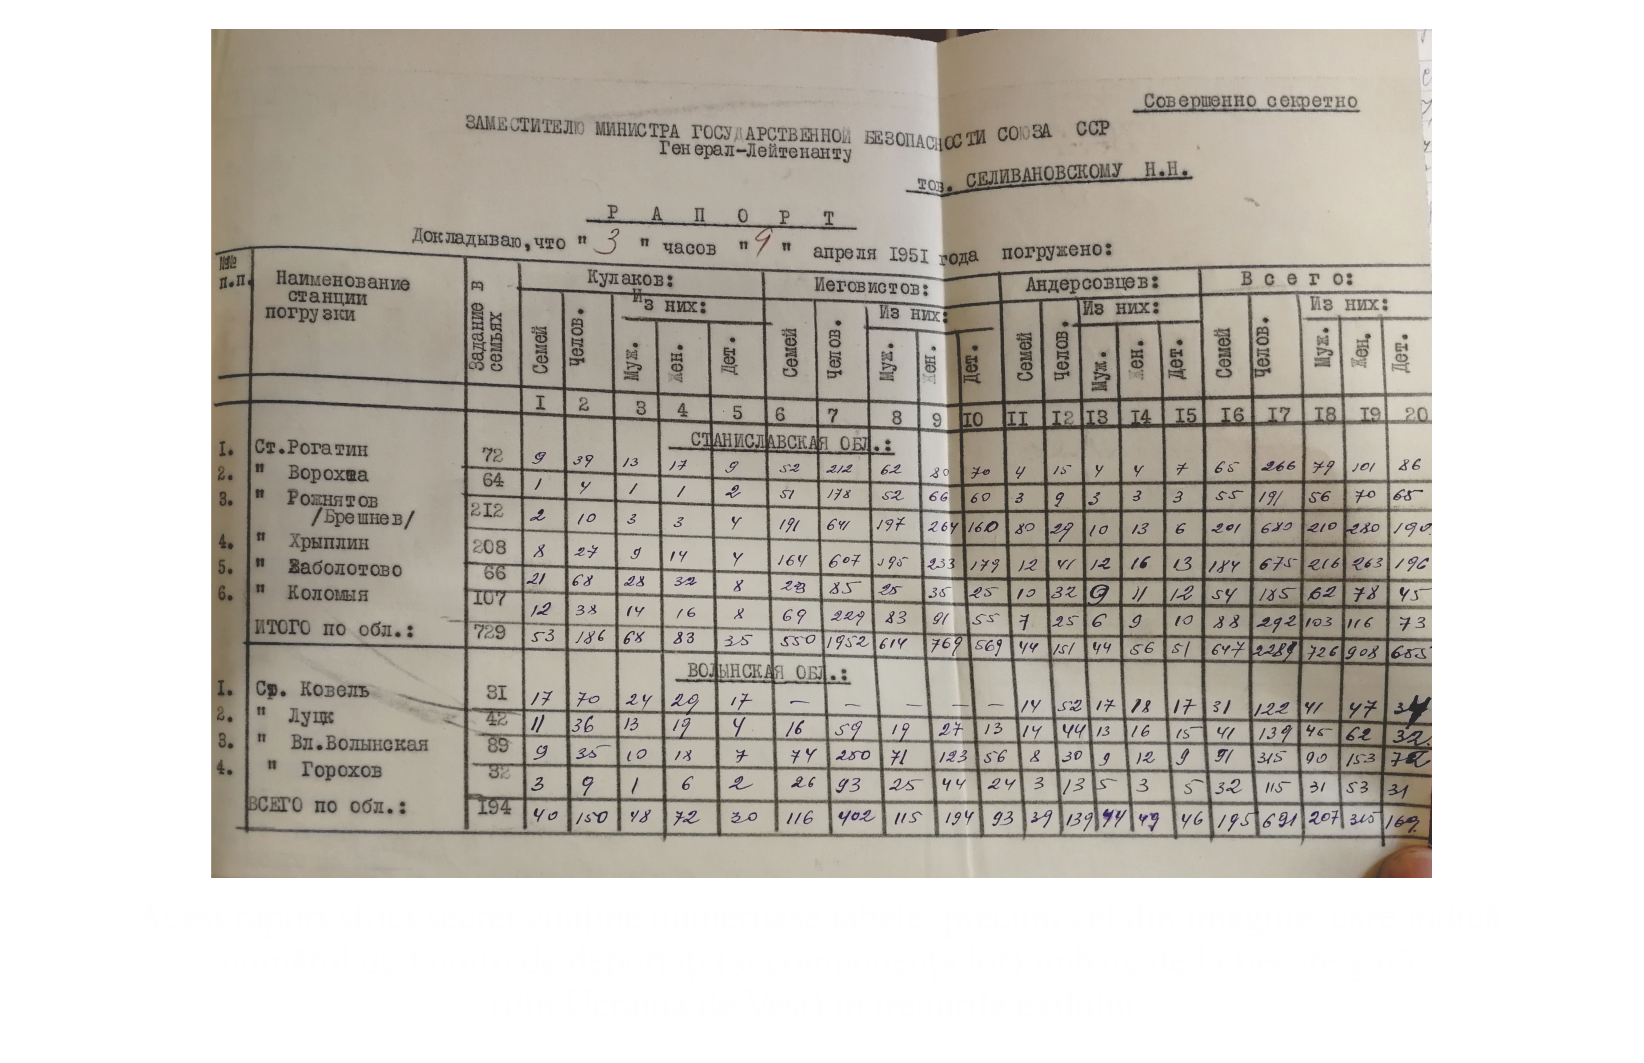 Совершенно секретно
ЗАМЕСТИТЕЛЮ МИНИСТРА ГОСУДАРСТВЕННОЙ БЕЗОПАСНОСТИ СОЮЗА ССР
Генерал-Лейтенанту
тов. СЕЛИВАНОВСКОМУ Н.Н.
Р А П О Р Т
Докладываю, что " 3 " часов " 9 " апреля 1951 года погружено:
№№ п.п. Наименование станции погрузки Задание в семьях Кулаков: Иеговистов: Андерсовцев: В с е г о:
Из них: Из них: Из них: Из них:
Семей Челов. Муж. Жен. Дет. Семей Челов. Муж. Жен. Дет. Семей Челов. Муж. Жен. Дет. Семей Челов. Муж. Жен. Дет.
1 2 3 4 5 6 7 8 9 10 11 12 13 14 15 16 17 18 19 20
СТАНИСЛАВСКАЯ ОБЛ.:
1. Ст.Рогатин 72 9 39 13 17 9 52 212 62 80 70 4 15 4 4 7 65 266 79 101 86
2. " Ворохта 64 1 4 1 1 2 51 178 52 66 60 3 9 3 3 3 55 191 56 70 65
3. " Рожнятов 212 2 10 3 3 4 191 641 197 264 160 80 29 10 13 6 201 680 210 280 190
/Брешнев/
4. " Хрыплин 208 8 27 9 14 4 164 607 195 233 179 12 41 12 16 13 184 675 216 263 196
5. " Заболотово 66 21 68 28 32 8 23 85 25 35 25 10 32 9 11 12 54 185 62 78 45
6. " Коломыя 107 12 38 14 16 8 69 229 83 91 55 7 25 6 9 10 88 292 103 116 73
ИТОГО по обл.: 729 53 186 68 83 35 550 1952 614 769 569 44 151 44 56 51 647 2289 726 908 655
ВОЛЫНСКАЯ ОБЛ.:
1. Ст. Ковель 31 17 70 24 29 17 — — — — — 14 52 17 18 17 31 122 41 47 34
2. " Луцк 42 11 36 13 19 4 16 59 19 27 13 14 44 13 16 15 41 139 45 62 32
3. " Вл.Волынская 89 9 35 10 18 7 74 250 71 123 56 8 30 9 12 9 91 315 90 153 72
4. " Горохов 32 3 9 1 6 2 26 93 25 44 24 3 13 5 3 5 32 115 31 53 31
ВСЕГО по обл.: 194 40 150 48 72 30 116 402 115 194 93 39 139 44 49 46 195 691 207 315 169